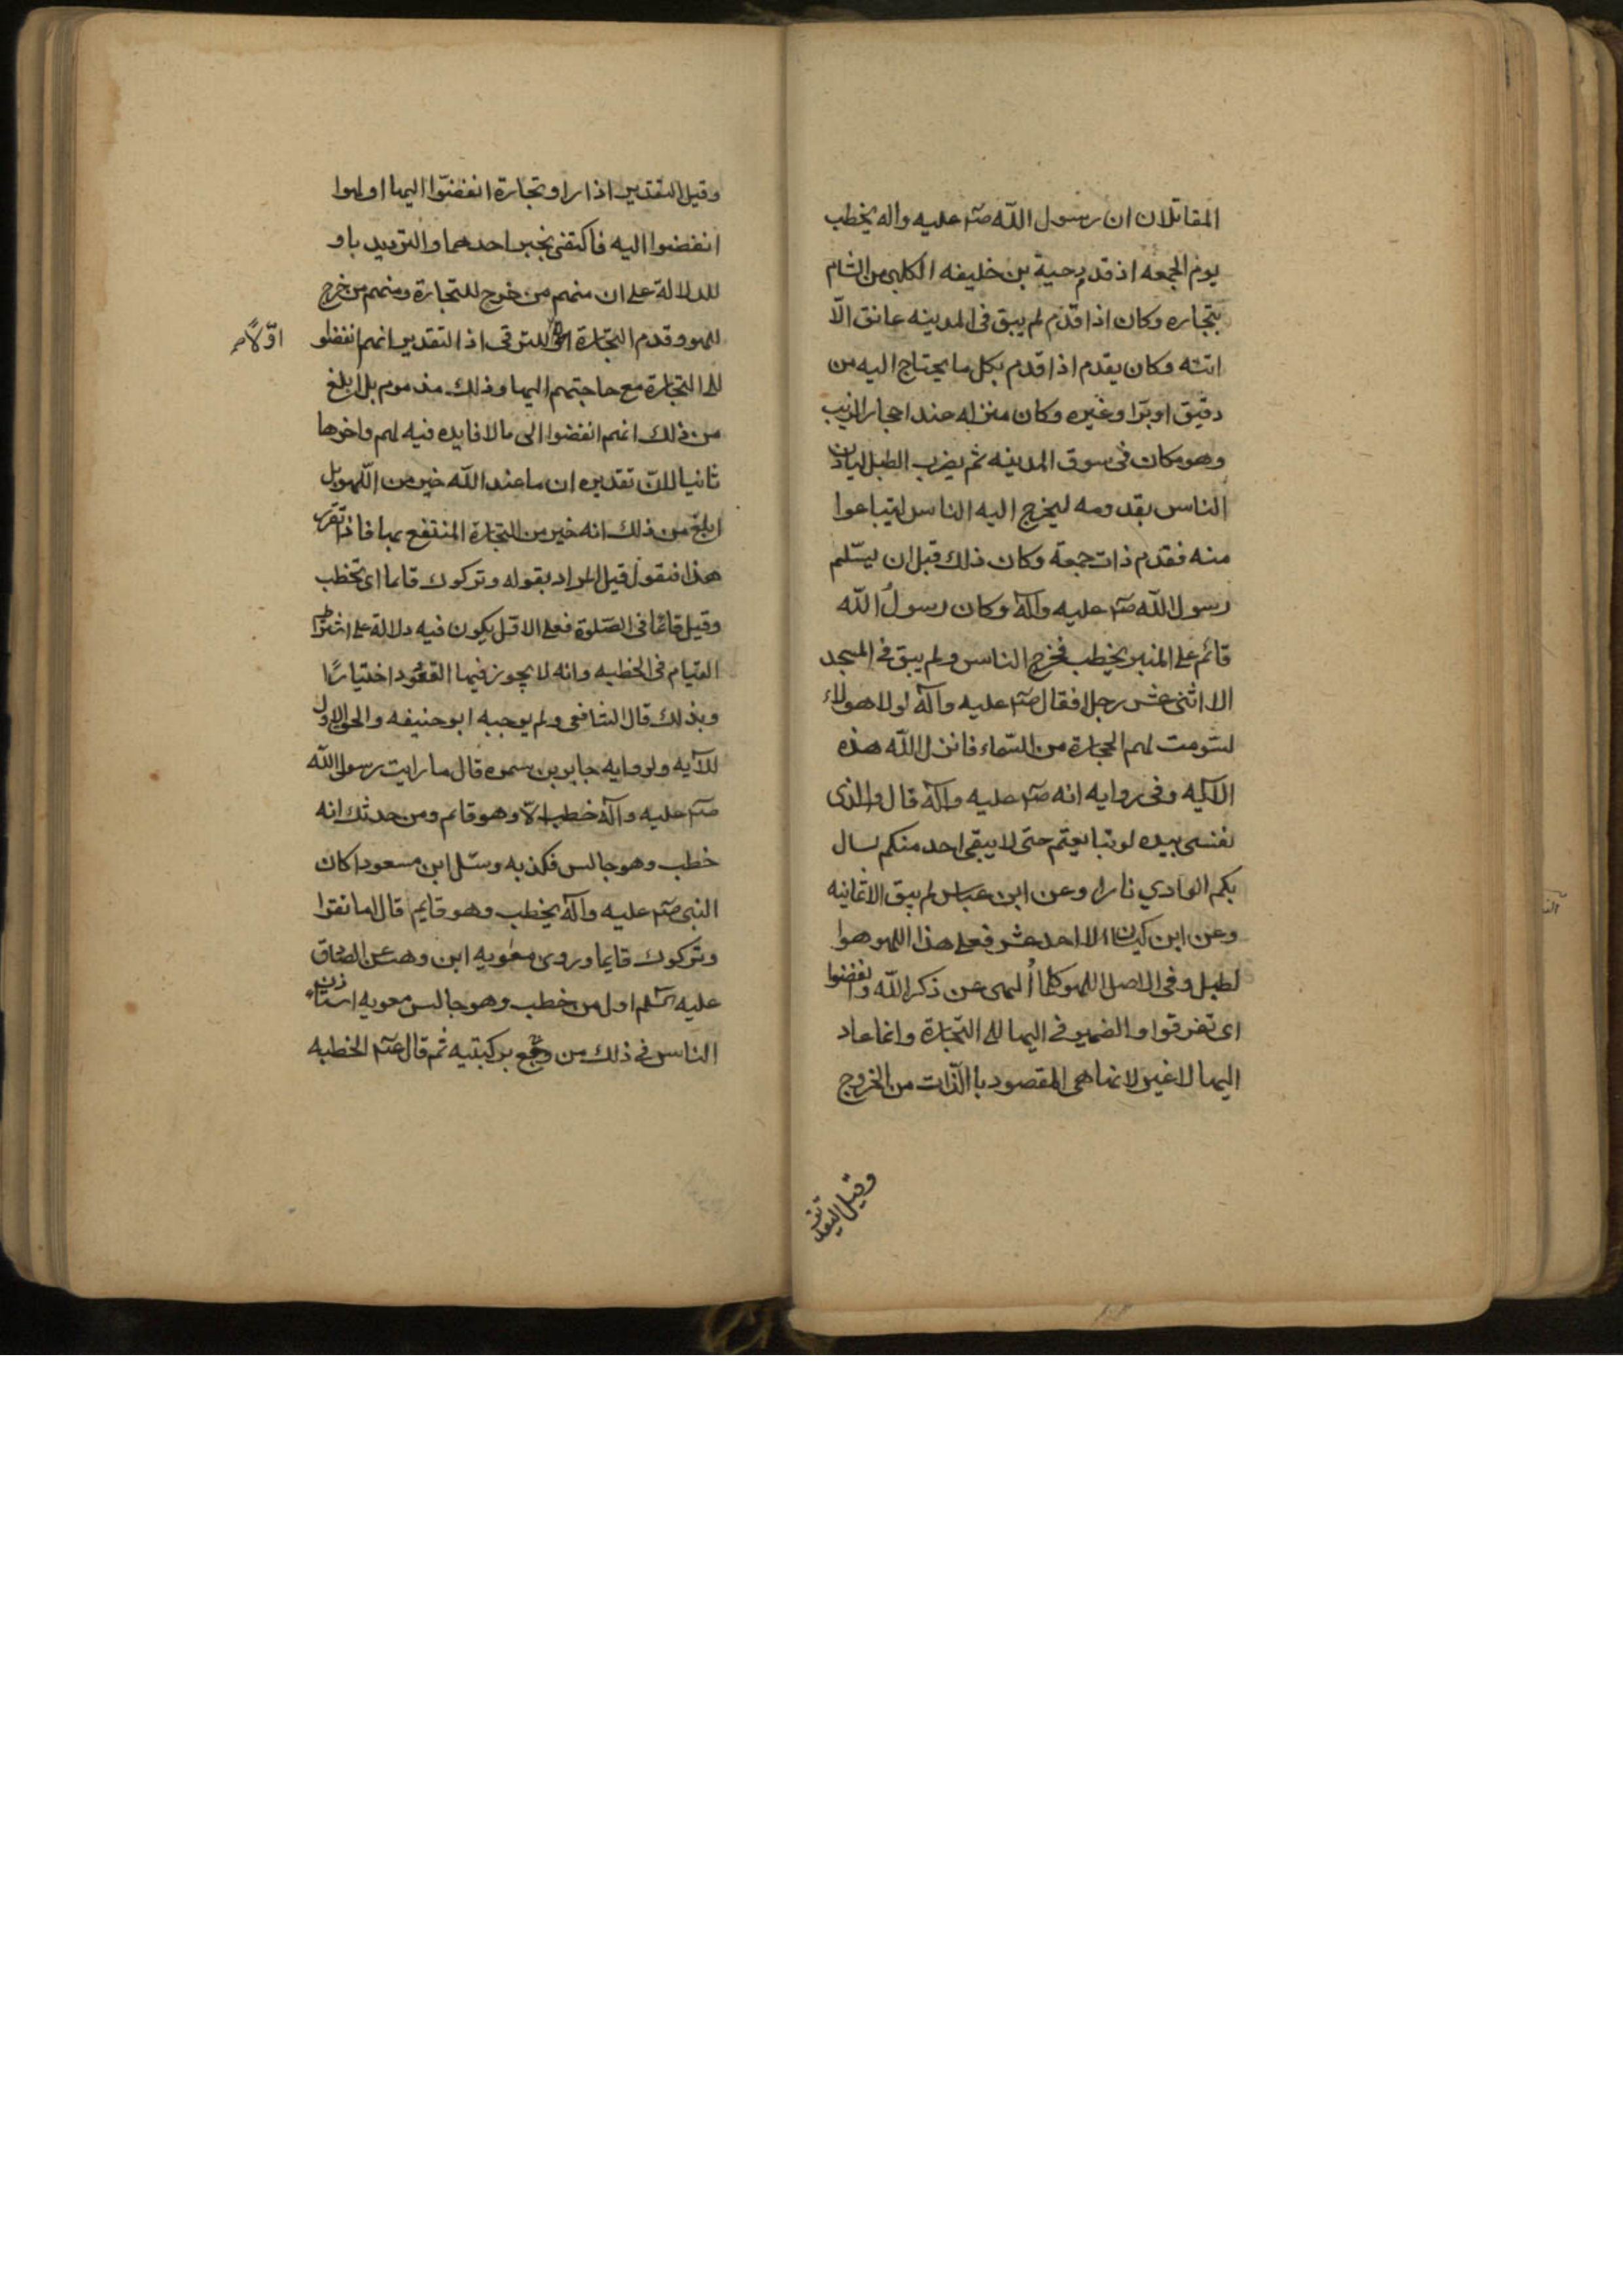 المقاتلان ان رسول الله صلم عليه واله يخطب
يوم الجمعه اذ قدم دحية بن خليفه الكلبى من الشام
بتجاره وكان اذا قدم لم يبق فى المدينه عاتق الّا
اتته وكان يقدم اذا قدم بكل ما يحتاج اليه من
دقيق او برّ او غيره وكان منزله عند احجار الزيت
وهو مكان فى سوق المدينه ثم يضرب الطبل ليأذن
الناس بقدومه ليخرج اليه الناس ليتباعوا
منه فقدم ذات جمعة وكان ذلك قبل ان يسّلم
رسول الله صلم عليه وآله وكان رسولُ الله
قائم على المنبر يخطب فخرج الناس ولم يبق فى المسجد
الا اثنى عشر رجلا فقال صلم عليه وآله لولا هولاء
لسّومت لهم الحجارة من السّماء فانزل الله هذه
الآيه وفى روايه انه صلم عليه وآله قال والذى
نفسى بيده لو تتابعتم حتى لا يبقى احد منكم لسال
بكم الوادي نارا وعن ابن عباس لم يبق الا ثمانيه
وعن ابن كيسان الا احد عشر فعلى هذا اللهو هوا
لطبل وفى الاصل اللهو كلما أُلهى عن ذكر الله وانفضوا
اى تفرقوا والضمير فى اليها الى التجارة وانما عاد
اليها لا غير لانها هى المقصود با الذّات من الخروج
وقيل التقد
وقيل التقدير اذا راو تجارة انفضّوا اليها او لهوا
انفضوا اليه فاكتفى بخبر احدهما والترديد باو
للدلالة على ان منهم من خرج للتجارة ومنهم من خرج
للهو وقدم التجارة للترقى اذ التقدير انهم انفضوا
اوّلًا صح
الى التجارة مع حاجتهم اليها وذلك مذموم بل ابلغ
من ذلك انهم انفضوا الى ما لا فايده فيه لهم واخرها
ثانيا لانّ تقديره ان ما عند الله خير من اللّهو بل
ابلغ من ذلك انه خير من التجارة المنتفع بها فاذا تقرر
هذا فنقول قيل المراد بقوله وتركوك قائما اى تخطب
وقيل قائمًا فى الصّلوة فعلى الاوّل يكون فيه دلالة على اشتراط
القيام فى الخطبه وانه لا يجوز فيها القعود اختيارًا
وبذلك قال الشافعى ولم يوجبه ابو حنيفه والحق الاول
للآيه ولروايه جابر بن سمره قال ما رايت رسول الله
صلم عليه وآله خطب الّا وهو قائم ومن حدثك انه
خطب وهو جالس فكذبه وسئل ابن مسعود اكان
النبى صلم عليه وآله يخطب وهو قايم قال اما تقرا
وتركوك قايما وروى معويه ابن وهب عن الصادق
عليه السّلم اول من خطب وهو جالس معويه استأذن
الناس فى ذلك من وجع بركبتيه ثم قال عتم الخطبه